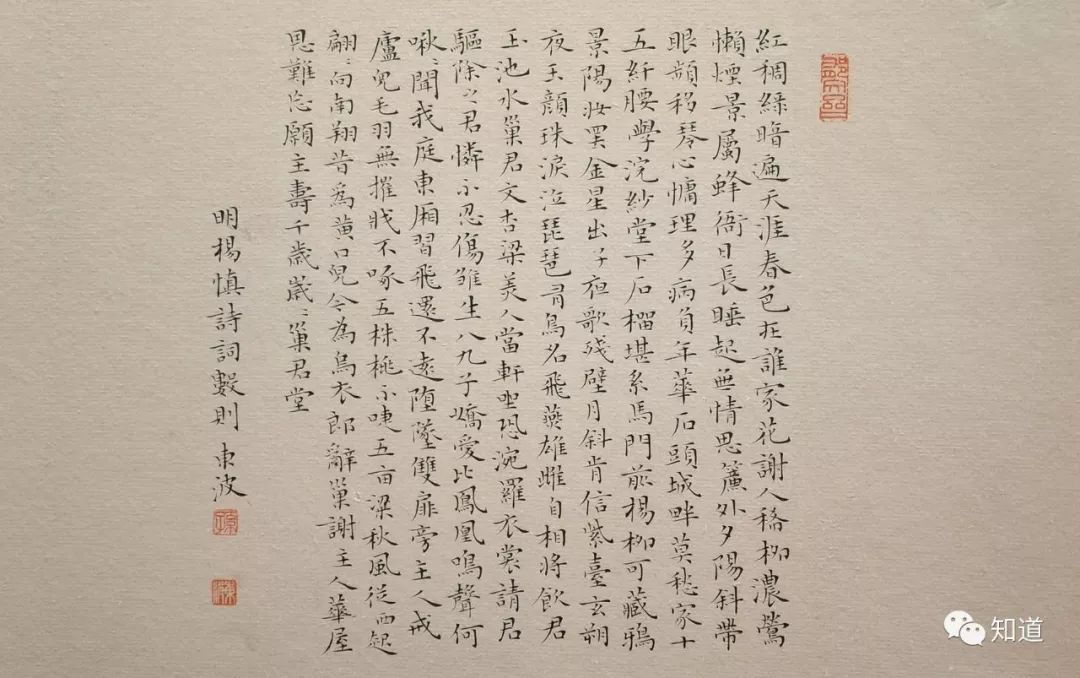 紅稠綠暗遍天涯春色在誰家花謝人稀柳濃鶯
懶煙景屬蜂衙日長睡起無情思簾外夕陽斜帶
眼頻移琴心慵理多病負年華石頭城畔莫愁家十
五纤腰學浣紗堂下石榴堪系馬門前楊柳可藏鴉
景陽妝罢金星出子夜歌残璧月斜肯信紫臺玄朔
夜玉顏珠淚泣琵琶有鳥名飛燕雄雌自相將飲君
玉池水巢君文杏梁美人當軒坐恐涴羅衣裳請君
驅除之君憐不忍傷雛生八九子嬌愛比鳳凰鳴聲何
啾:聞我庭東厢習飛還不遠墮墜雙扉旁主人戒
廬兒毛羽無摧戕不啄五株桃不唼五亩梁秋風從西起
翩:向南翔昔為黃口兒今為烏衣郎辭巢謝主人華屋
恩難忘願主壽千歲歲:巢君堂
明楊慎詩詞數則 東波
知道